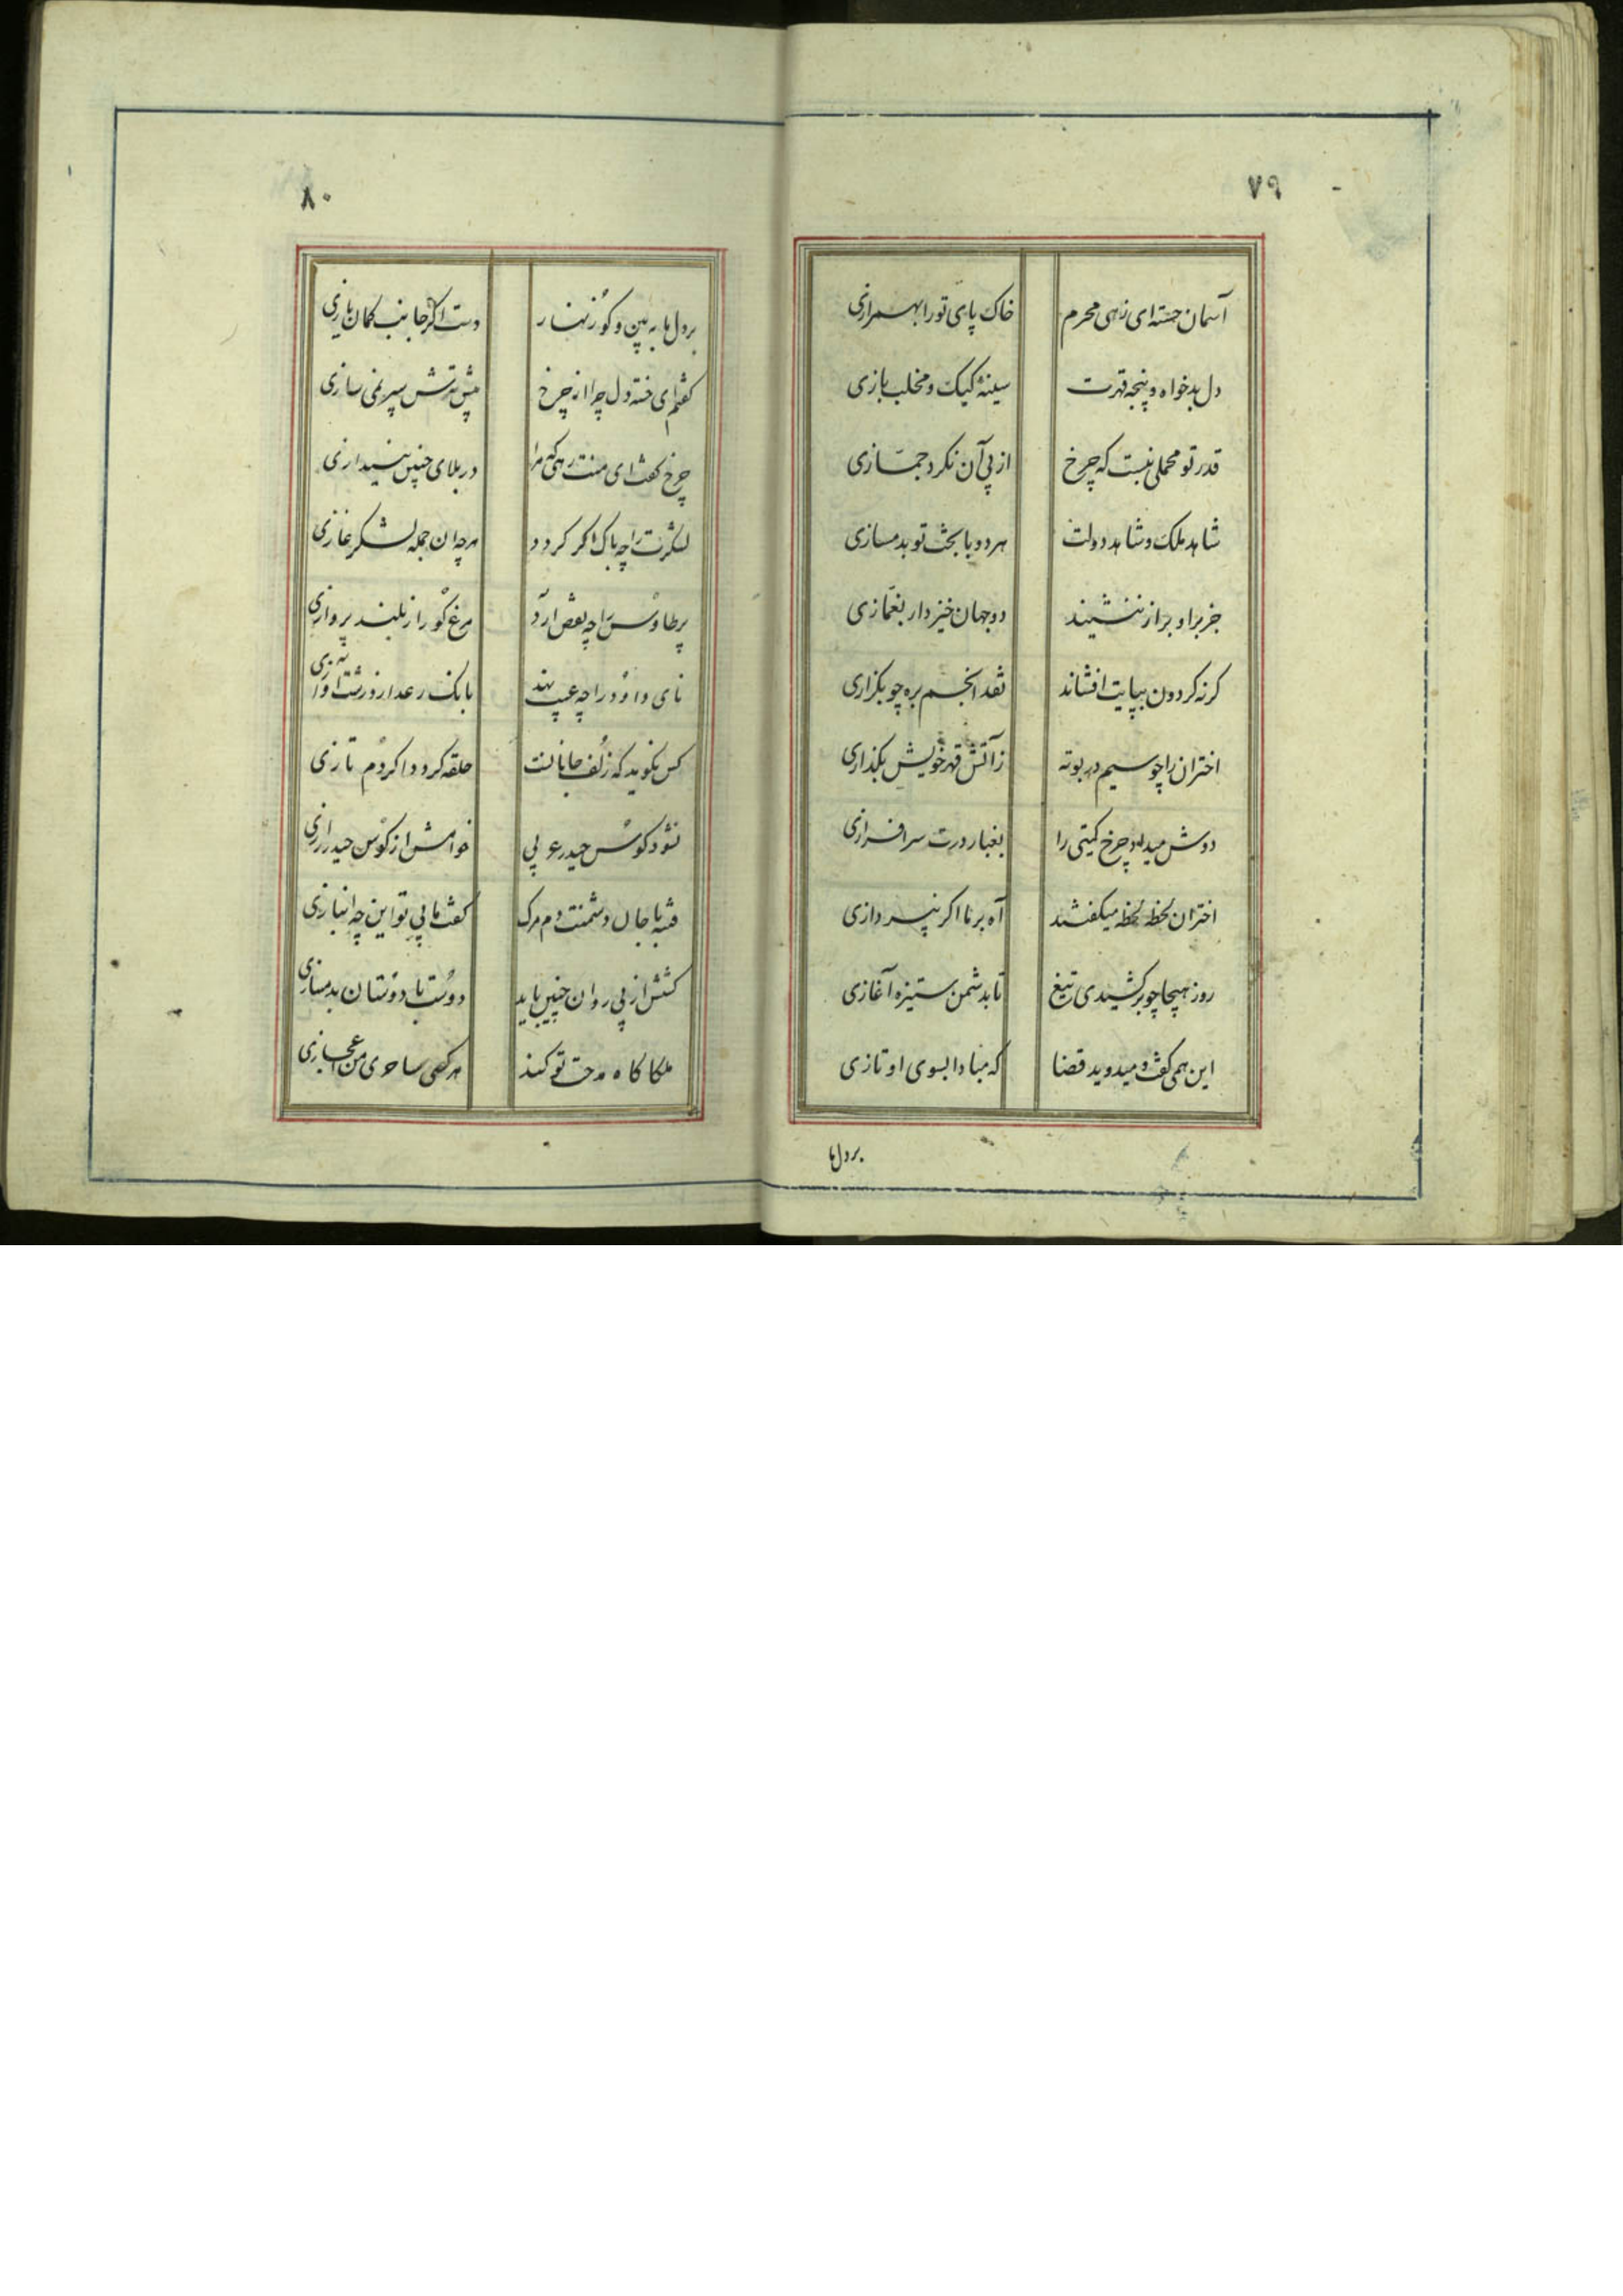 ۷۹
آسمان جسته ای زهی محرم خاک پای تو را بهمرازی
دل بدخواه و پنجه قهرت سینه کبک و مخلب بازی
قدر تو محملی نبست که چرخ از پی آن نکرد جمّازی
شاهد ملک و شاهد دولت هر دو با بخت تو بدمسازی
جز برای و براز ننشیند دو جهان خیزد ار بغمازی
کر نه کردون بپایت افشاند نقد انجم بره چو بکزاری
اختران را چو سیم در بوته زآتش قهر خویش بکذاری
دوش میداد چرخ کیتی را بغبار درت سرافرازی
اختران لحظه لحظه میکفتند آه بر ما اکر نپردازی
روز هیجا چو برکشیدی تیغ تا بدشمن ستیزه آغازی
این همی کفت و میدوید قضا که مبادا بسوی او تازی
بر دل ما
۸۰
بر دل ما به بین و کو زنهار دست اکر جانب کمان یازی
کفتم ای خسته دل چرا از چرخ پیش تیرش سپر نمی سازی
چرخ کفت ای منت رهی که مرا در بلای چنین نیندازی
لشکرت را چه باک اکر کردد هر چه ان جمله لشکر غازی
پر طاوس را چه نقص ارد مرغ کور از بلند پروازی
نای داود را چه عیب نهد بانک رعد از درشت اوازی
کس نکوید که زلف جانانست حلقه کردد اکر دم تازی
نشود کوس حیدر عربی خوانمش از کوس حیدر رازی
فتنه با جان دشمنت دم مرک کفت ما بی تو این چه انبازی
کفتش از پی روان چنین باید دوست با دوستان بدمسازی
ملکا کاه مدحت تو کنند هر کهی ساحری من اعجازی